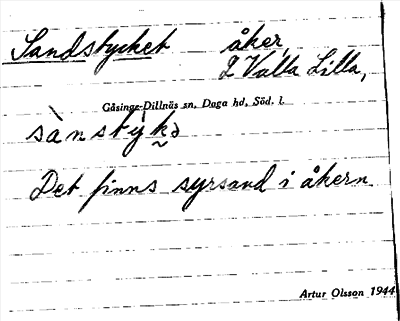 Sandstycket åker,
L Valla Lilla,
Gåsinge-Dillnäs sn, Daga hd, Söd. l.
sànstýk̬ə
Det finns syrsand i åkern.
Artur Olsson 1944